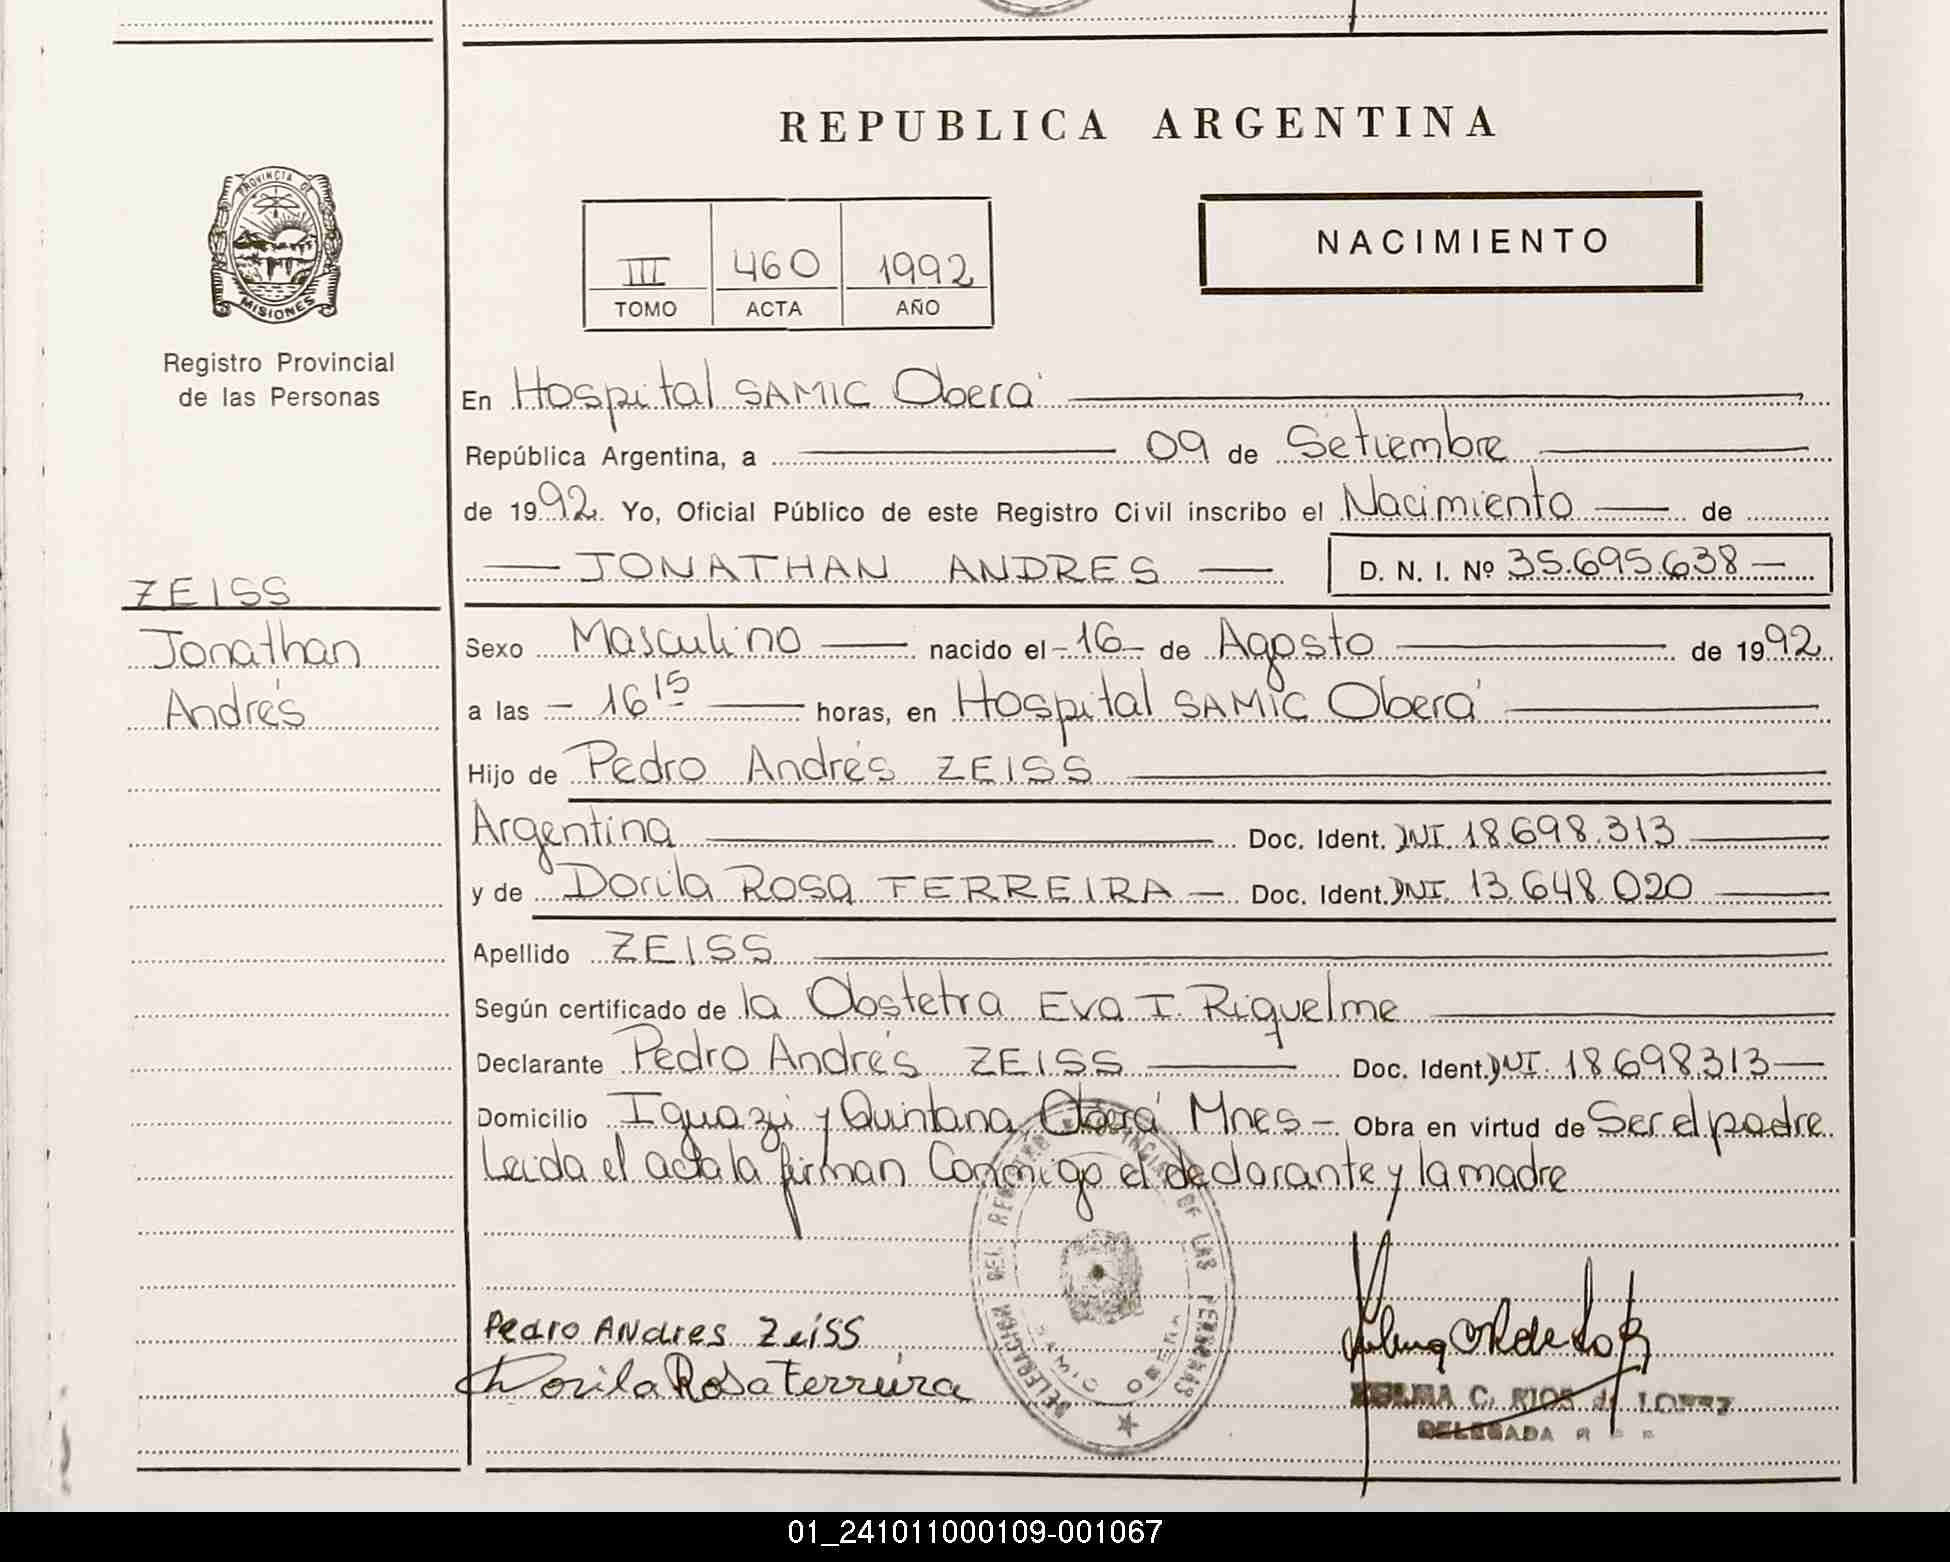 REPUBLICA ARGENTINA
PROVINCIA DE
MISIONES
Registro Provincial
de las Personas
III 460 1992
TOMO ACTA AÑO
NACIMIENTO
En Hospital SAMIC Oberá
República Argentina, a 09 de Setiembre
de 1992. Yo, Oficial Público de este Registro Civil inscribo el Nacimiento de
JONATHAN ANDRES D. N. I. Nº 35.695.638
ZEISS
Jonathan
Andrés
Sexo Masculino nacido el 16 de Agosto de 1992
a las 16 15 horas, en Hospital SAMIC Oberá
Hijo de Pedro Andrés ZEISS
Argentina Doc. Ident. DNI. 18.698.313
y de Dorila Rosa FERREIRA Doc. Ident. DNI. 13.648.020
Apellido ZEISS
Según certificado de la Obstetra Eva I. Riquelme
Declarante Pedro Andrés ZEISS Doc. Ident. DNI. 18.698.313
Domicilio Iguazú y Quintana Oberá Mnes - Obra en virtud de Ser el padre
Leida el acta la firman Conmigo el declarante y la madre
Pedro ANdres Zeiss
Dorila Rosa Ferreira
DELEGACION DEL REGISTRO PROVINCIAL DE LAS PERSONAS
SAMIC OBERA
C. RIOS de LOPEZ
DELEGADA
01_241011000109-001067